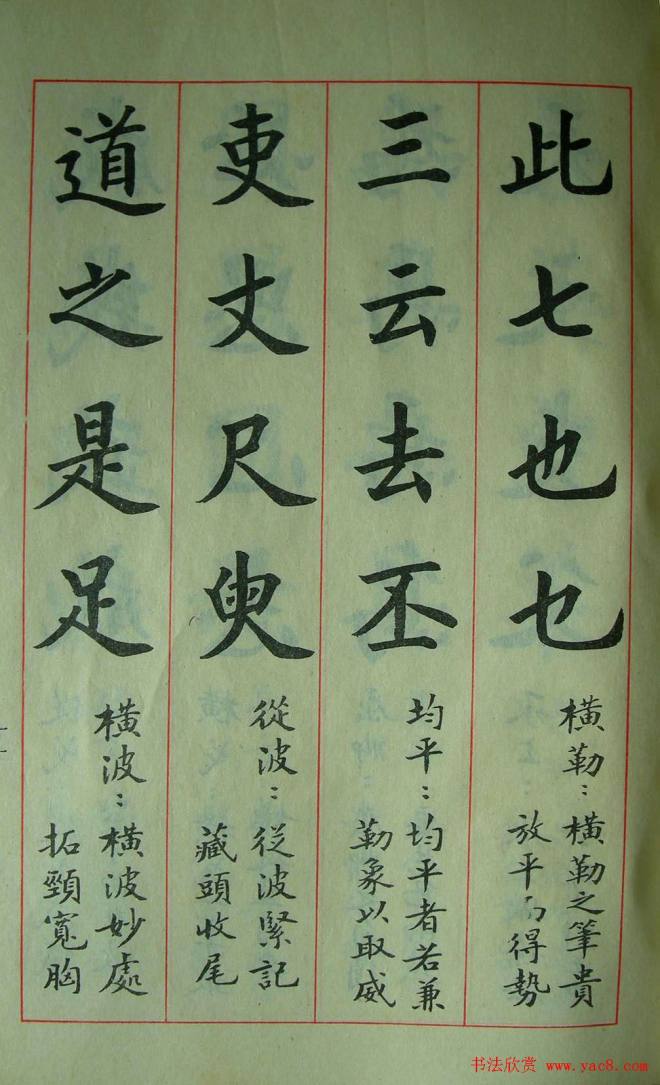 此七也乜
橫勒：橫勒之筆貴
放平而得勢
三云去丕
均平：均平者若兼
勒象以取威
吏丈尺臾
從波：從波緊記
藏頭收尾
道之是足
橫波：橫波妙處
拓頸寬胸
书法欣赏 www.yac8.com